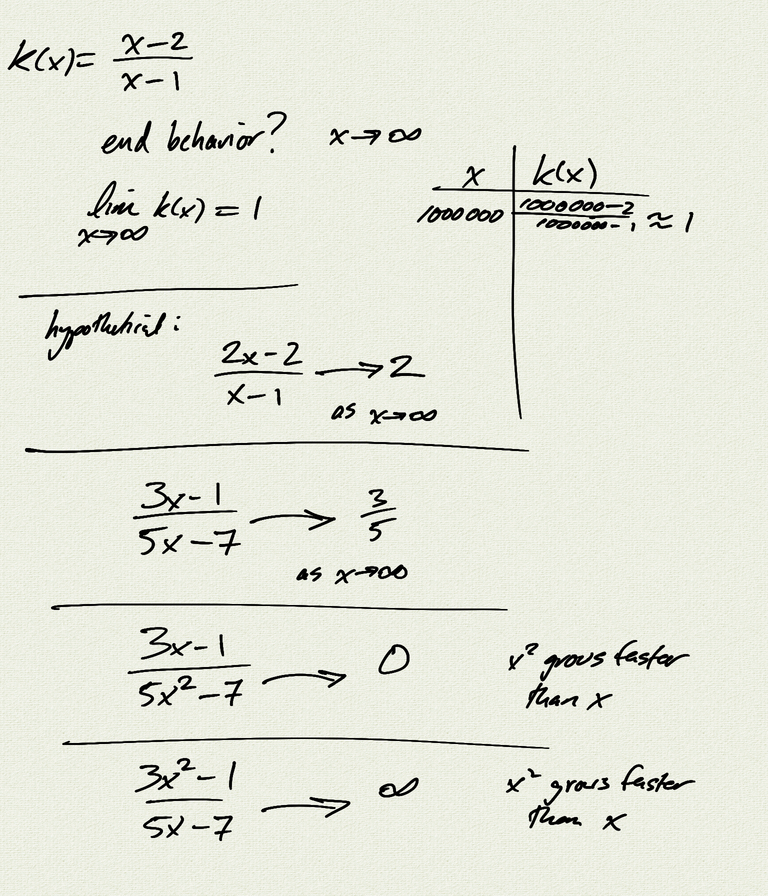 k(x) = x-2 / x-1
end behavior? x→∞
lim k(x) = 1
x→∞
x | k(x)
1000000 | 1000000-2 / 1000000-1 ≈ 1
hypothetical:
2x-2 / x-1 → 2
as x→∞
3x-1 / 5x-7 → 3/5
as x→∞
3x-1 / 5x²-7 → 0
x² grows faster
than x
3x²-1 / 5x-7 → ∞
x² grows faster
than x